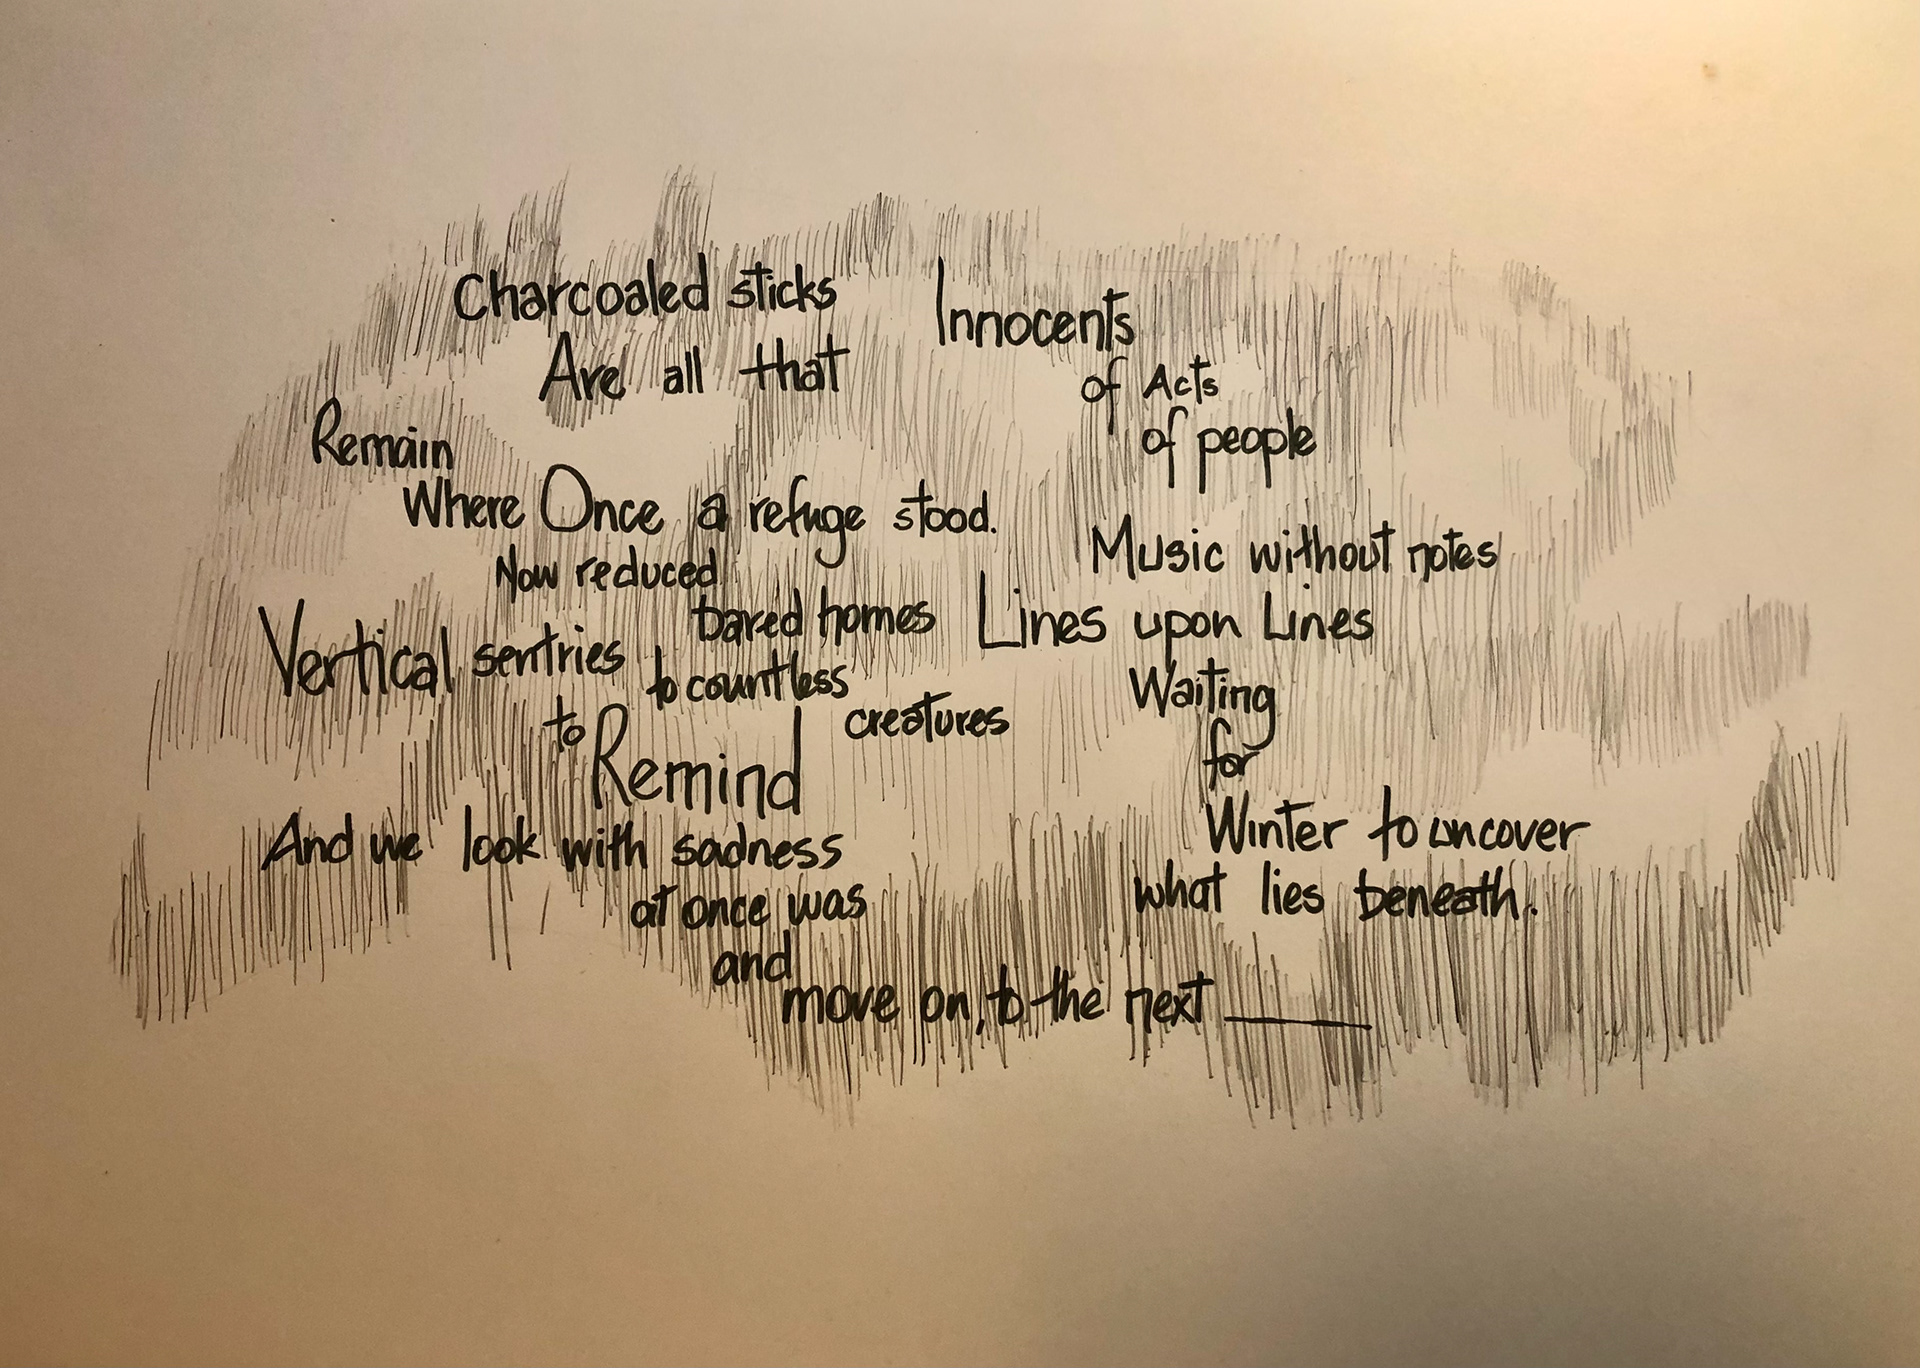 Charcoaled sticks
Are all that
Remain
Where Once a refuge stood.
Now reduced
bared homes
Vertical sentries
to countless
creatures
to Remind
And we look with sadness
at once was
and
move on, to the next ______
Innocents
of Acts
of people
Music without notes
Lines upon Lines
Waiting
for
Winter to uncover
what lies beneath.